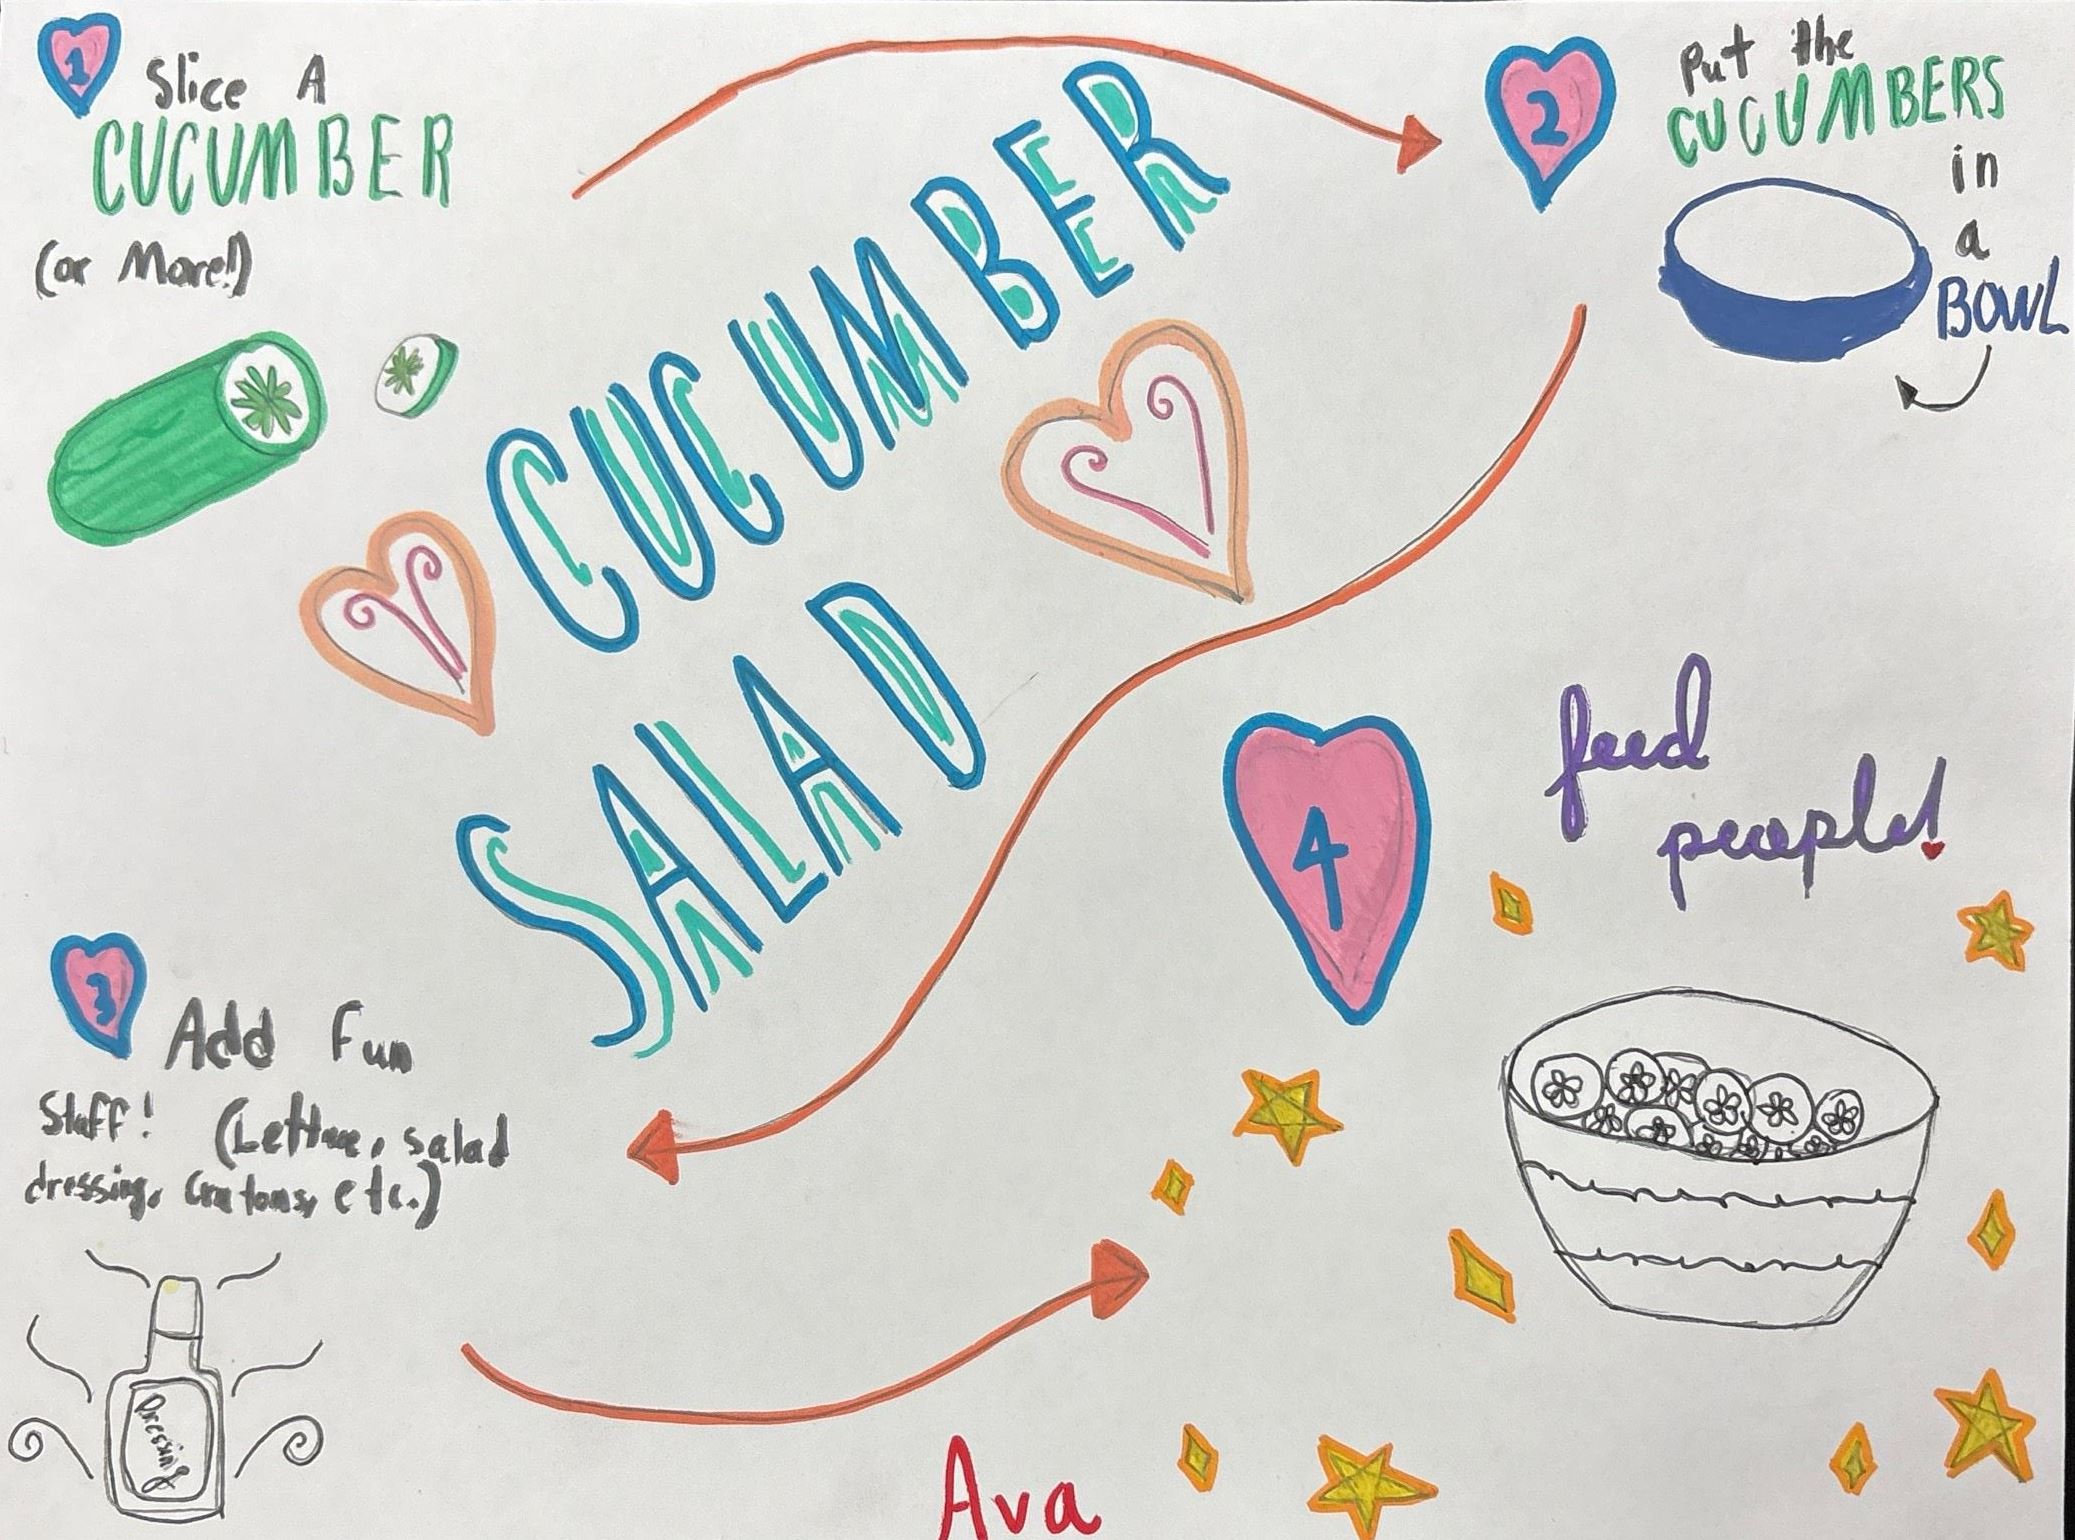 1
Slice A
CUCUMBER
(or More!)
CUCUMBER
SALAD
2
Put the
CUCUMBERS
in
a
BOWL
3
Add Fun
Stuff! (Lettuce, salad
dressing, Crutons, etc.)
Dressing
4
feed
people!
Ava